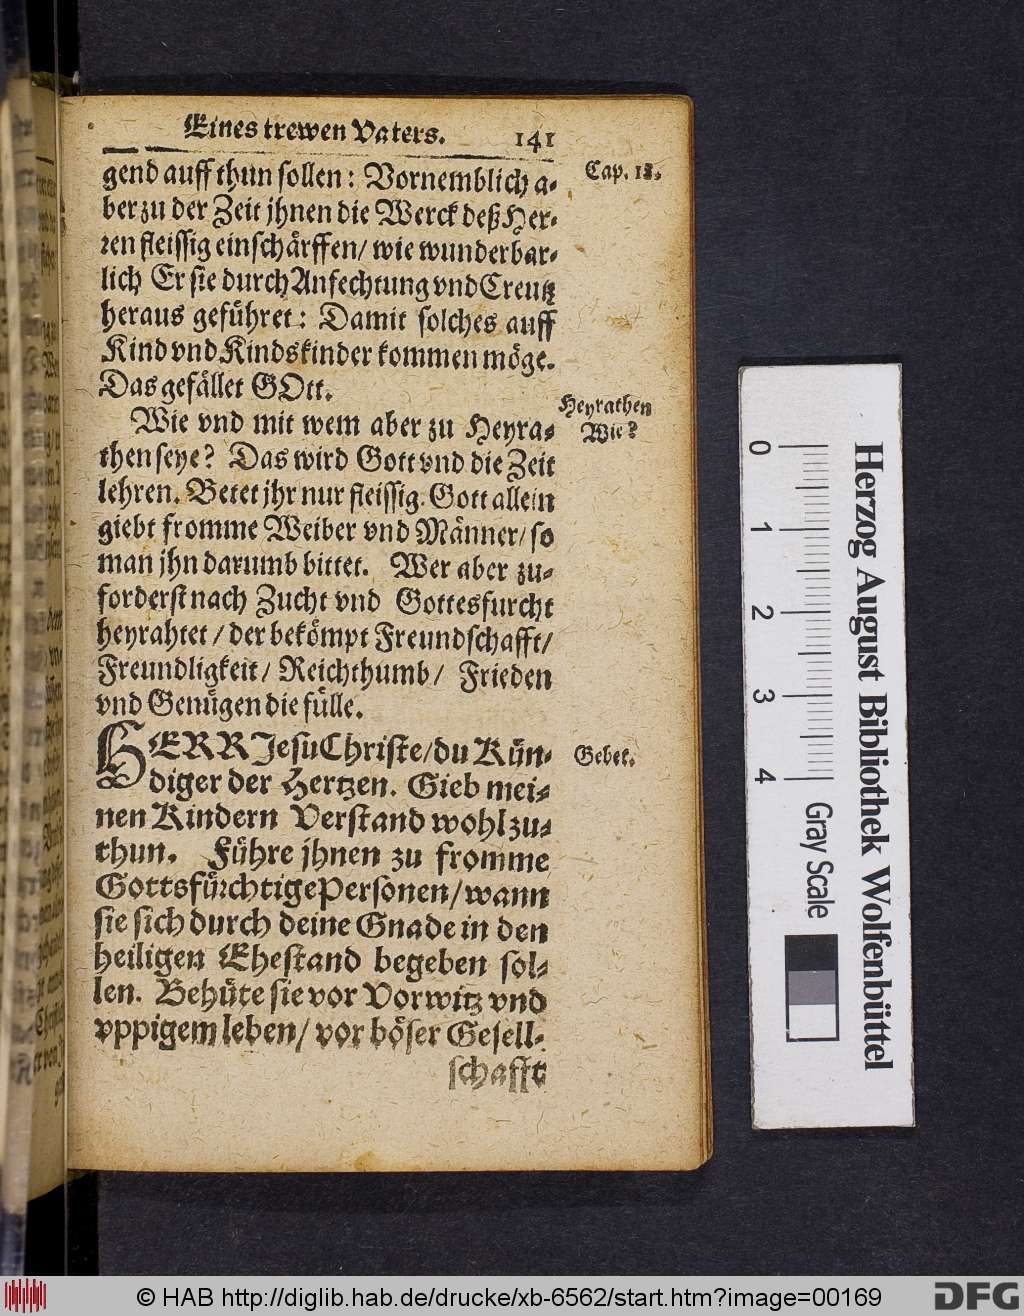 Eines trewen Vaters. 141
gend auff thun sollen: Vornemblich a-
ber zu der Zeit jhnen die Werck deß Her-
ren fleissig einschärffen/ wie wunderbar-
lich Er sie durch Anfechtung vnd Creutz
heraus geführet: Damit solches auff
Kind vnd Kindskinder kommen möge.
Das gefället GOtt.
Wie vnd mit wem aber zu Heyra-
then seye? Das wird Gott vnd die Zeit
lehren. Betet jhr nur fleissig. Gott allein
giebt fromme Weiber vnd Männer/ so
man jhn darumb bittet. Wer aber zu-
forderst nach Zucht vnd Gottesfurcht
heyrahtet/ der bekömpt Freundschafft/
Freundligkeit/ Reichthumb/ Frieden
vnd Genügen die fülle.
HERR Jesu Christe/ du Kün-
diger der Hertzen. Gieb mei-
nen Kindern Verstand wohl zu-
thun. Führe jhnen zu fromme
Gottsfürchtige Personen/ wann
sie sich durch deine Gnade in den
heiligen Ehestand begeben sol-
len. Behüte sie vor Vorwitz vnd
vppigem leben/ vor böser Gesell-
schafft
Cap. 18.
Heyrathen
Wie?
Gebet.
Herzog August Bibliothek Wolfenbüttel
0 1 2 3 4
Gray Scale
© HAB http://diglib.hab.de/drucke/xb-6562/start.htm?image=00169
DFG